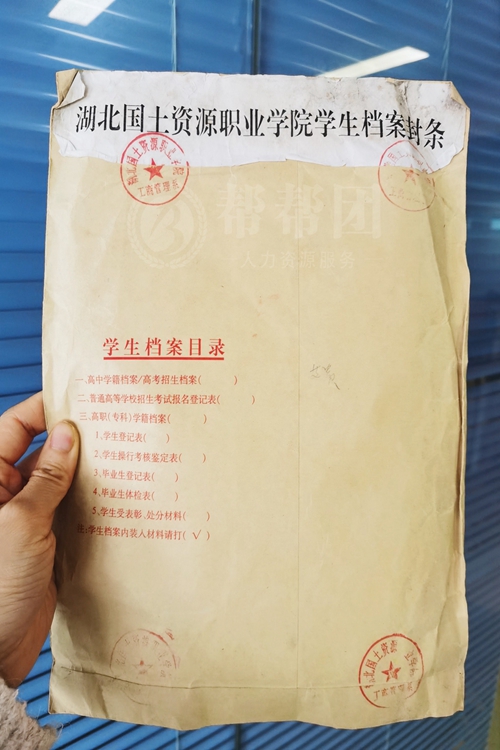 湖北国土资源职业学院学生档案封条
湖北国土资源职业学院
工商管理系
帮帮团
人力资源服务
学生档案目录
一、高中学籍档案/高考招生档案( )
二、普通高等学校招生考试报名登记表( )
三、高职(专科)学籍档案( )
1、学生登记表( )
2、学生操行考核鉴定表( )
3、毕业生登记表( )
4、毕业生体检表( )
5、学生受表彰、处分材料( )
注:学生档案内装入材料请打(√)
北国土资源
工商管理系